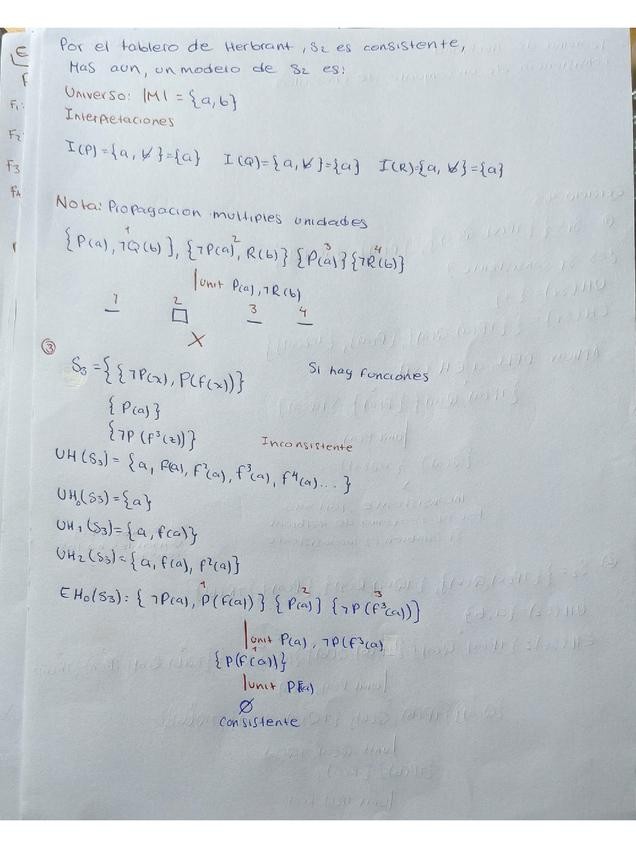 Por el tablero de Herbrant, S₂ es consistente,
Mas aun, un modelo de S₂ es:
Universo: |M| = {a,b}
Interpretaciones
I(P)={a, b̸}={a} I(Q)={a, b̸}={a} I(R)={a, b̸}={a}
Nota: Propagacion multiples unidades
1 2 3 4
{P(a), ¬Q(b)}, {¬P(a), R(b)} {P(a)} {¬R(b)}
| unit P(a), ¬R(b)
1 2 3 4
— □ — —
X
③
S₃ = {{¬P(x), P(f(x))} Si hay funciones
{P(a)}
{¬P(f³(z))} Inconsistente
UH(S₃) = {a, f(a), f²(a), f³(a), f⁴(a)...}
UH₀(S₃)={a}
UH₁(S₃)={a, f(a)}
UH₂(S₃)={a, f(a), f²(a)}
1 2 3
EH₀(S₃): {¬P(a), P(f(a))} {P(a)} {¬P(f³(a))}
| unit P(a), ¬P(f³(a)
1
{P(f(a))}
| unit P(a)
∅
consistente
E
F₁:
F₂
F₃
F₄